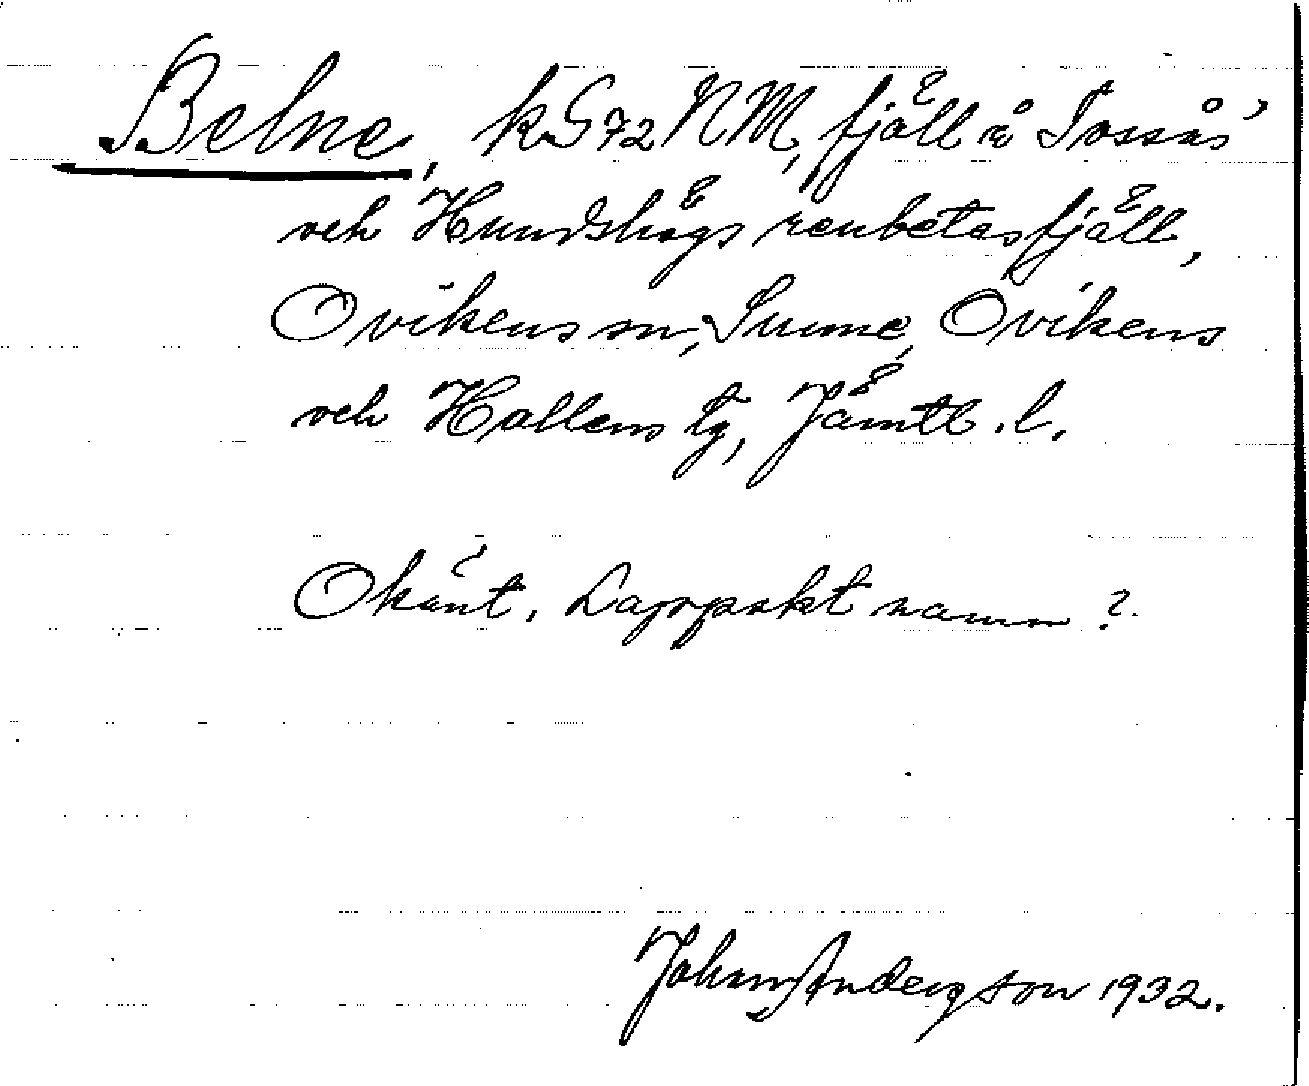 Belne, kG 72 NM, fjäll å Tossås'
och Hundshögs renbetesfjäll,
Ovikens sn, Sunne, Ovikens
och Hallens tg, Jämtl. l.
Okänt. Lappskt namn?
Johan Anderzson 1932.